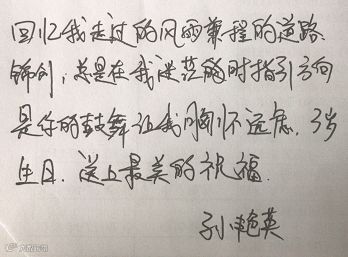 回忆我走过的风雨兼程的道路.
锦剑，总是在我迷茫的时指引方向
是你的鼓舞让我胸怀远虑. 3岁
生日. 送上最美的祝福.
孙艳英